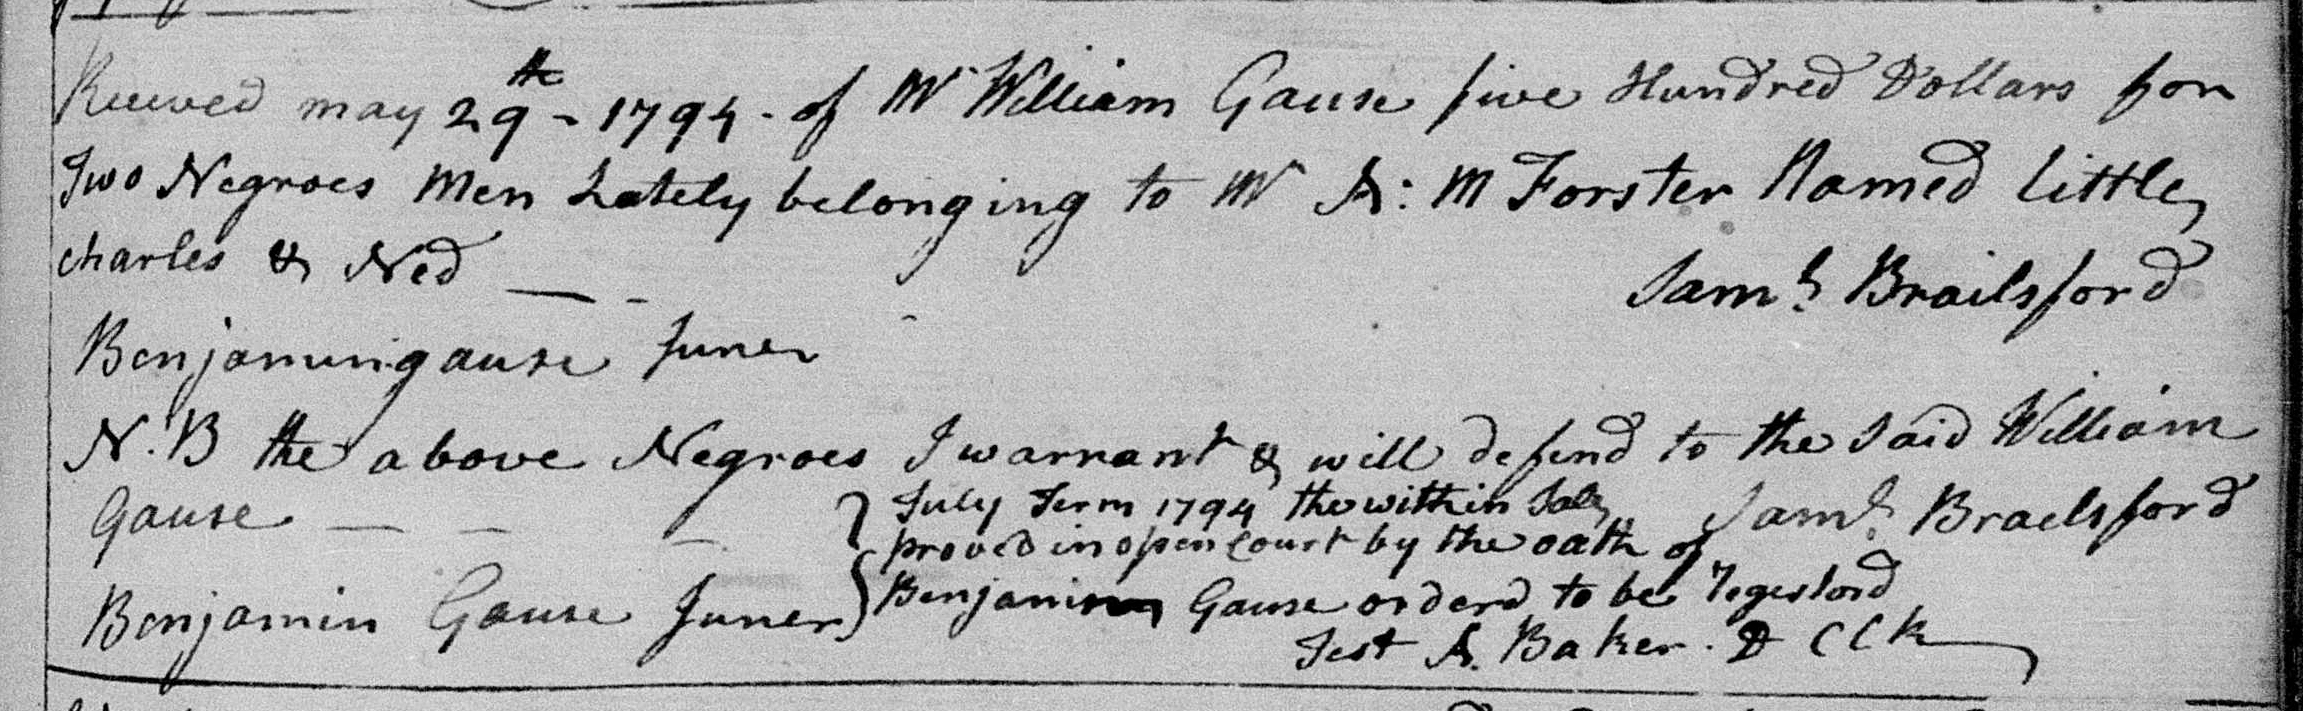 Received may 29th - 1794 - of Mr William Gause five Hundred Dollars for
Two Negroes Men Lately belonging to Mr A: M Forster Named Little
charles & Ned
Saml. Brailsford
Benjamin gause Juner
N.B the above Negroes I warrant & will defend to the said William
Gause
Saml. Braelsford
Benjamin Gause Juner
July Term 1794 the within Sale
proved in open Court by the oath of
Benjamin Gause orderd to be Regestord
Test A. Baker. D CClk